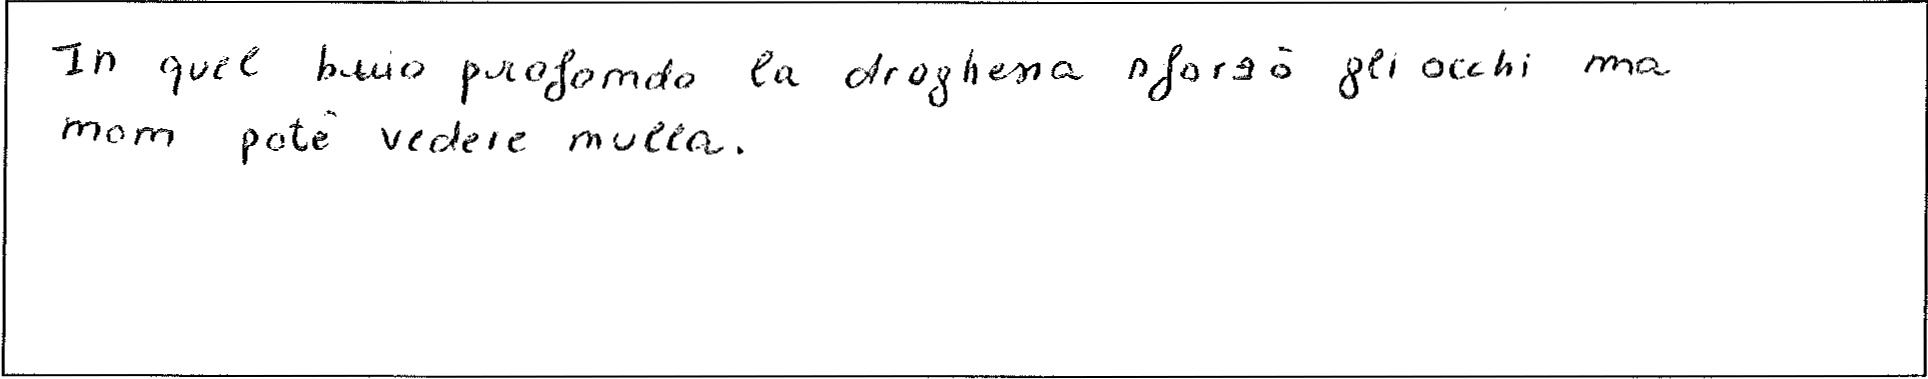 In quel buio profondo la droghessa sforzò gli occhi ma
non potè vedere nulla.